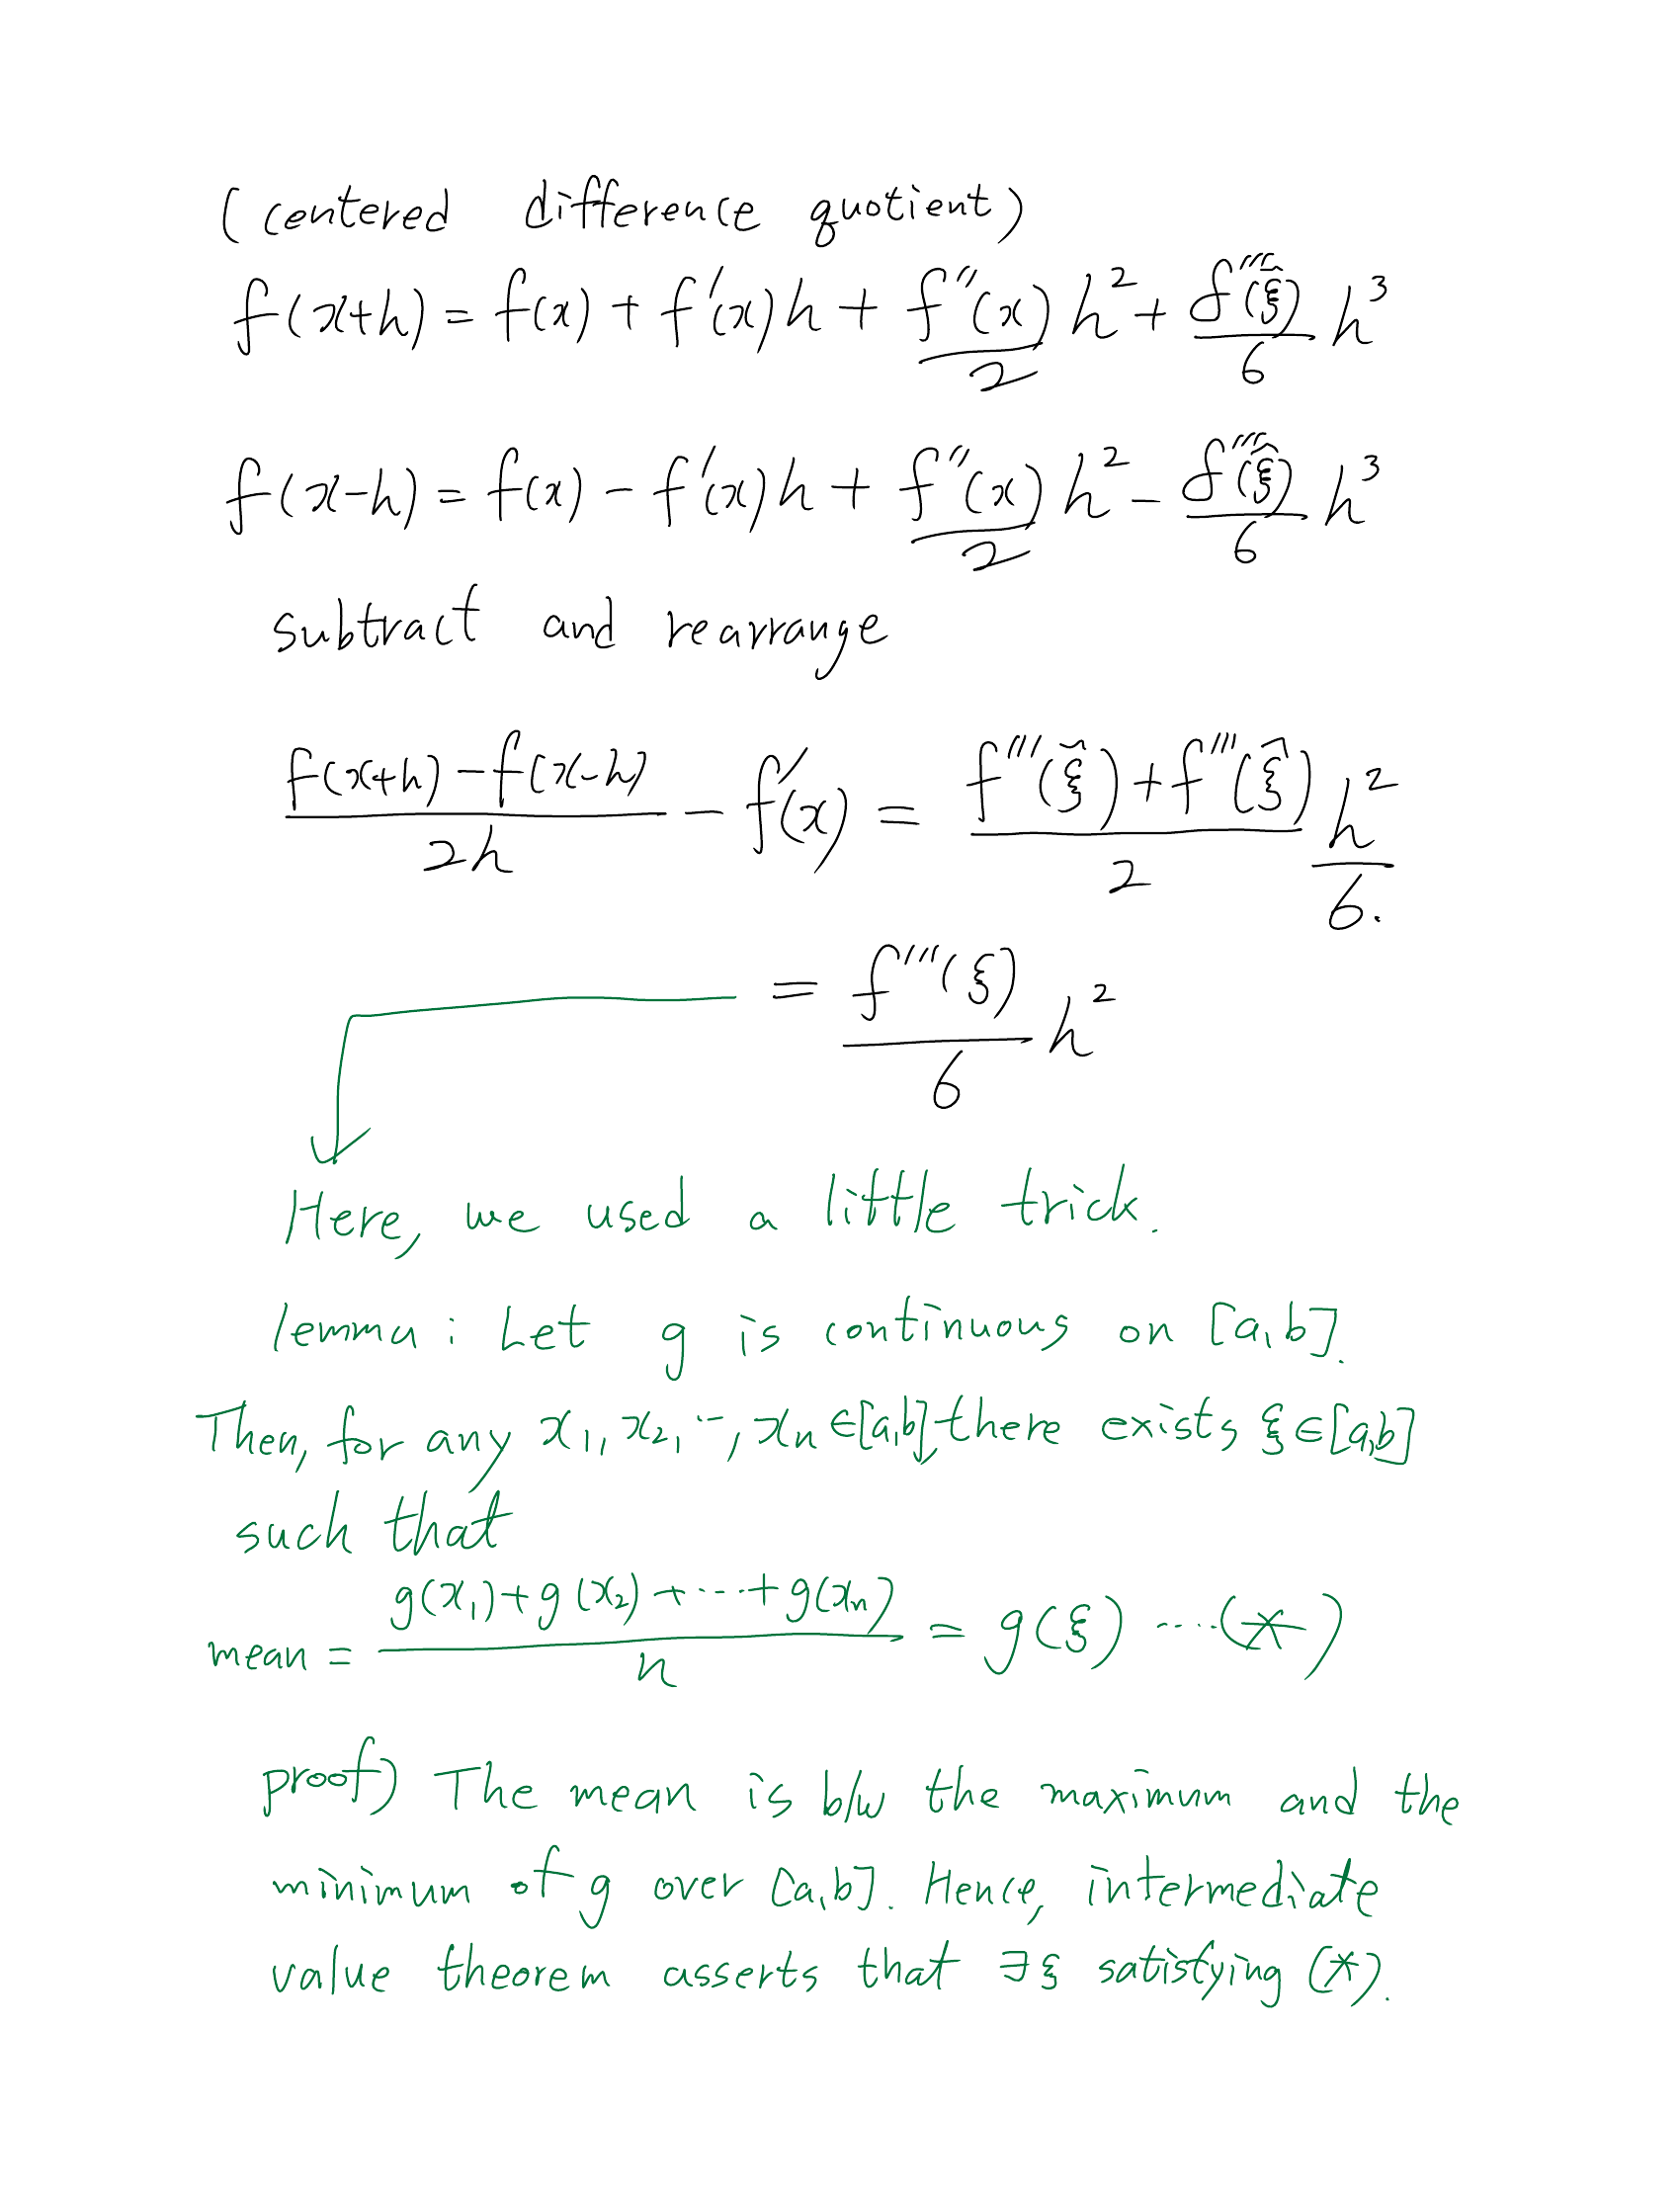 (centered difference quotient)
f(x+h) = f(x) + f'(x)h + f''(x)/2 h² + f'''(ξ̃)/6 h³
f(x-h) = f(x) - f'(x)h + f''(x)/2 h² - f'''(ξ̂)/6 h³
subtract and rearrange
(f(x+h) - f(x-h))/2h - f'(x) = (f'''(ξ̃) + f'''(ξ̂))/2 h²/6.
= f'''(ξ)/6 h²
Here, we used a little trick.
lemma : Let g is continuous on [a,b].
Then, for any x₁, x₂, ⋯, xn ∈ [a,b], there exists ξ ∈ [a,b]
such that
mean = (g(x₁) + g(x₂) + ⋯ + g(xn))/n = g(ξ) ....(*)
proof) The mean is b/w the maximum and the
minimum of g over [a,b]. Hence, intermediate
value theorem asserts that ∃ξ satisfying (*).